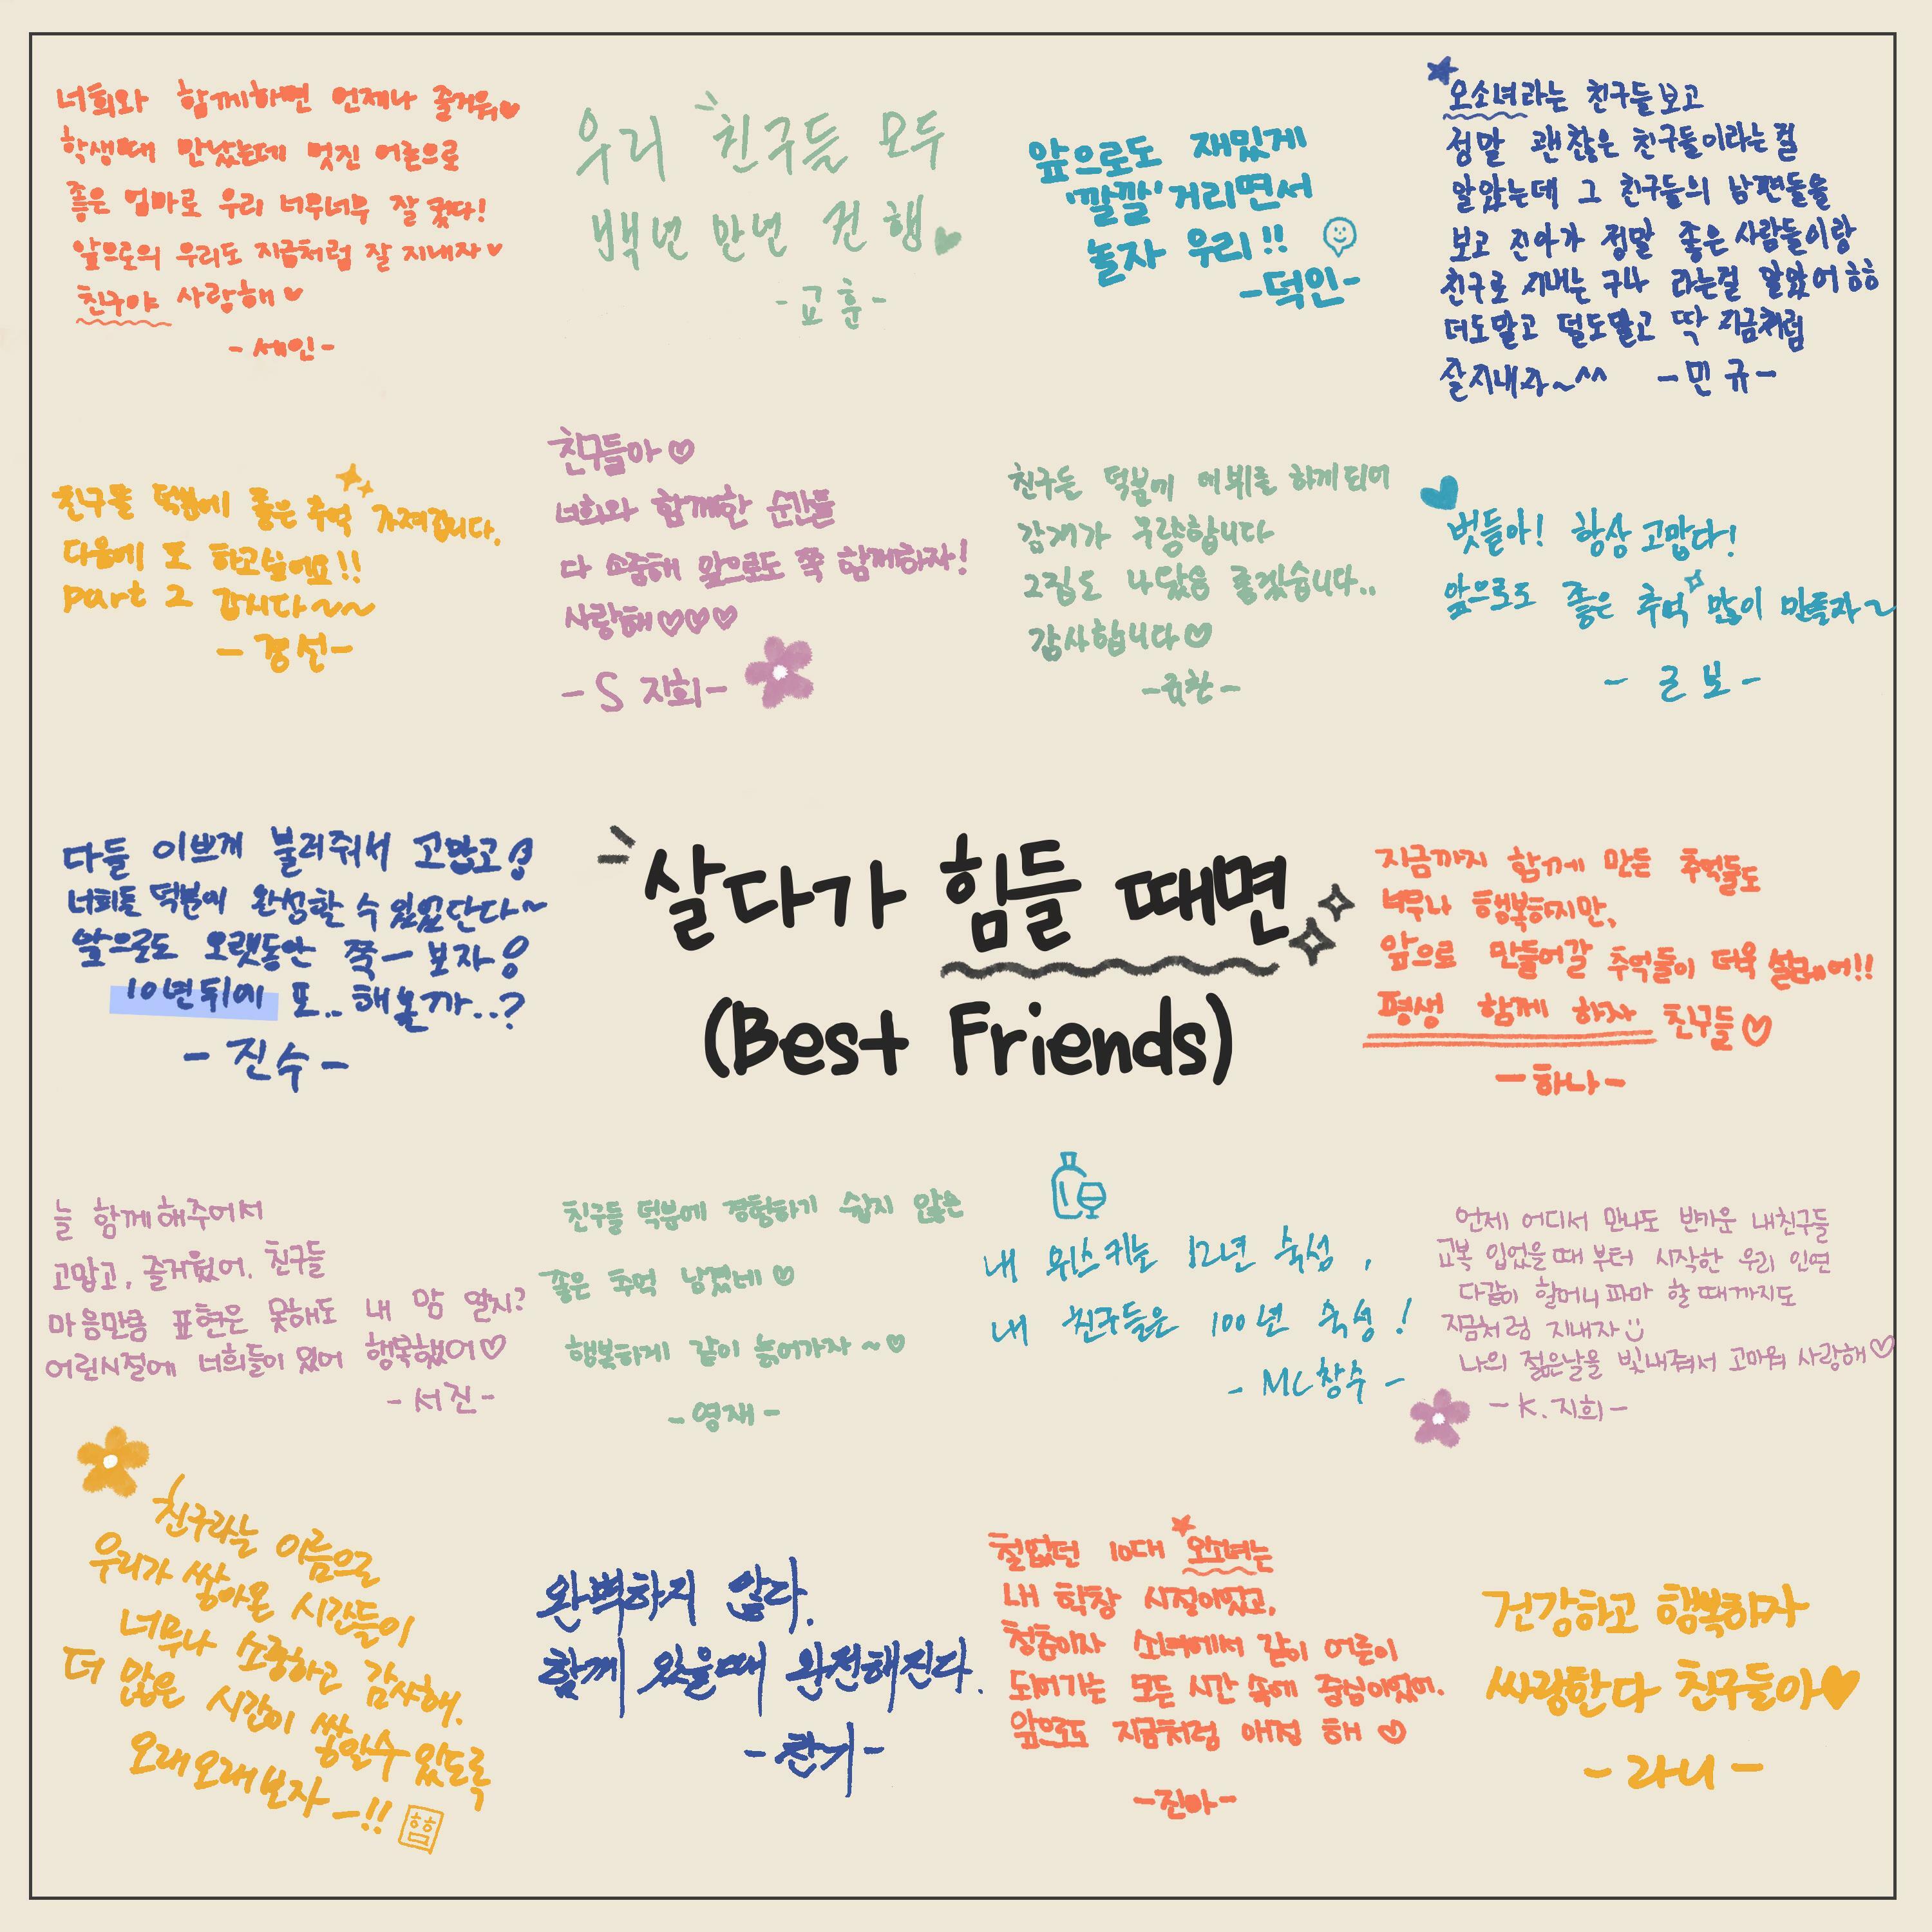 너희와 함께하면 언제나 즐거워♥
학생때 만났는데 멋진 어른으로
좋은 엄마로 우리 너무너무 잘 컸다!
앞으로의 우리도 지금처럼 잘 지내자♥
친구야 사랑해♥
-세인-
우리 친구들 모두
백년 만년 건행♥
-교훈-
앞으로도 재밌게
'깔깔'거리면서
놀자 우리!!
-덕인-
오소녀라는 친구들보고
정말 괜찮은 친구들이라는걸
알았는데 그 친구들의 남편들을
보고 진아가 정말 좋은사람들이랑
친구로 지내는 구나 라는걸 알았어ㅎㅎ
더도말고 덜도말고 딱 지금처럼
잘지내자~^^ -민규-
친구들 덕분에 좋은 추억 가져갑니다.
다음에 또 하고싶어요!!
part 2 갑시다~~
-경선-
친구들아♡
너희와 함께한 순간들
다 소중해 앞으로도 쭉 함께하자!
사랑해♡♡♡
-S 지희-
친구들 덕분에 데뷔를 하게되어
감개가 무량합니다
그집도 나았음 좋겠습니다..
감사합니다♡
-규환-
벗들아! 항상 고맙다!
앞으로도 좋은 추억 많이 만들자~
-근보-
다들 이쁘게 불러줘서 고맙고!
너희들 덕분에 완성할 수 있었단다~
앞으로도 오랫동안 쭉- 보자!
10년뒤에 또.. 해볼까..?
-진수-
살다가 힘들 때면
(Best Friends)
지금까지 함께 만든 추억들도
너무나 행복하지만,
앞으로 만들어갈 추억들이 더욱 설레어!!
평생 함께 하자 친구들♡
-하나-
늘 함께해주어서
고맙고, 즐거웠어. 친구들
마음만큼 표현은 못해도 내 맘 알지?
어린시절에 너희들이 있어 행복했어♡
-서진-
친구들 덕분에 경험하기 쉽지 않은
좋은 추억 남겼네♡
행복하게 같이 늙어가자~♡
-영재-
내 위스키는 12년 숙성,
내 친구들은 100년 숙성!
-MC창수-
언제 어디서 만나도 반가운 내친구들
교복 입었을때부터 시작한 우리 인연
다같이 할머니파마 할 때까지도
지금처럼 지내자
나의 젊은날을 빛내줘서 고마워 사랑해♡
-K.지희-
친구라는 이름으로
우리가 쌓아온 시간들이
너무나 소중하고 감사해.
더 많은 시간이 쌓일수있도록
오래오래보자-!!
완벽하지 않다.
함께 있을때 완전해진다.
-찬기-
철없던 10대 오소녀는
내 학창 시절이었고,
청춘이자 소녀에서 같이 어른이
되어가는 모든 시간 속에 중심이었어.
앞으로도 지금처럼 애정 해♡
-진아-
건강하고 행복하자
싸랑한다 친구들아♥
-라니-